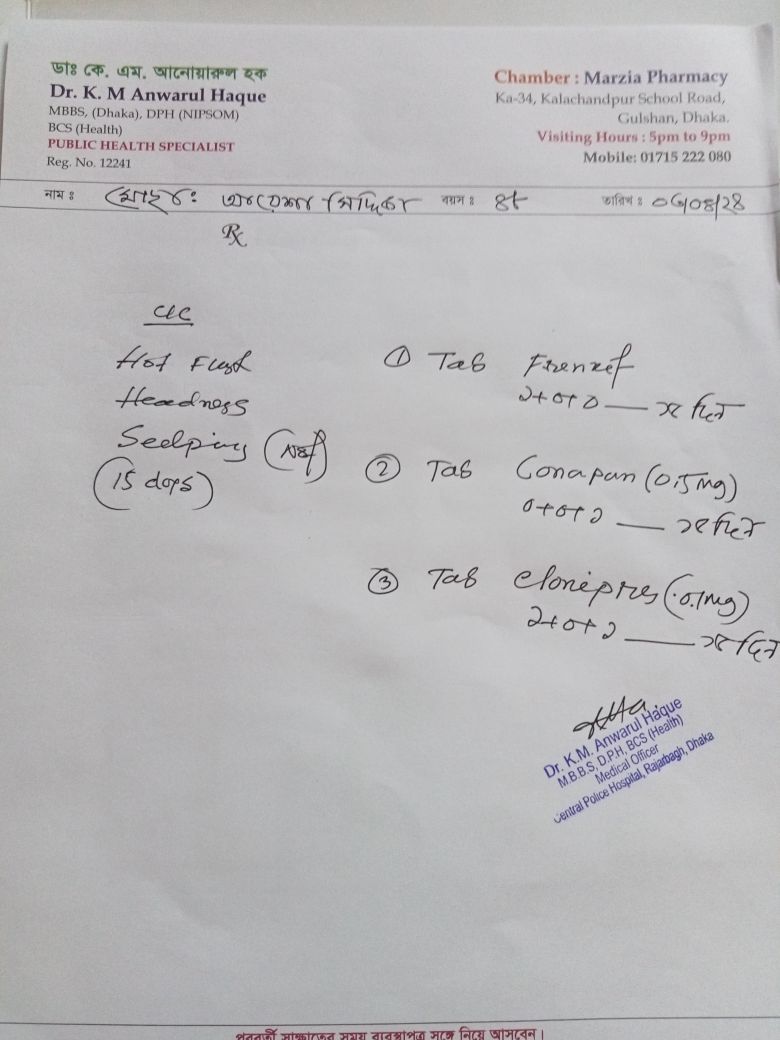 ডাঃ কে. এম. আনোয়ারুল হক
Dr. K. M Anwarul Haque
MBBS, (Dhaka), DPH (NIPSOM)
BCS (Health)
PUBLIC HEALTH SPECIALIST
Reg. No. 12241
Chamber : Marzia Pharmacy
Ka-34, Kalachandpur School Road,
Gulshan, Dhaka.
Visiting Hours : 5pm to 9pm
Mobile: 01715 222 080
নাম ঃ মোছাঃ সিদ্দিকা বয়স ঃ ৪৮ তারিখ ঃ
Rx
C/C
Hot Flush
Headness
Seelping
(15 days)
① Tab Frenxit
② Tab Conapan (0.5mg)
০+০+১
③ Tab Clonipres (0.1mg)
১+০+১
Dr. K.M. Anwarul Haque
M.B.B.S, D.P.H, BCS (Health)
Medical Officer
Central Police Hospital, Rajarbagh, Dhaka
পরবর্তী সাক্ষাতের সময় ব্যবস্থাপত্র সঙ্গে নিয়ে আসবেন।